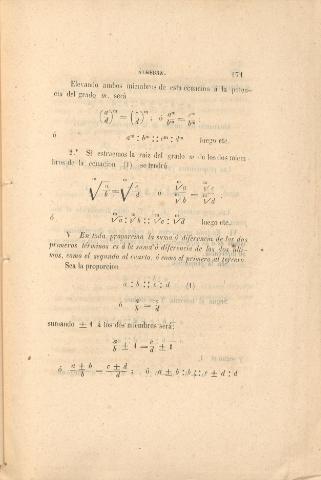 ALGEBRA. 171
Elevando ambos miembros de esta ecuacion á la poten-
cia del grado m, será
(a/b)^m = (c/d)^m ; ó a^m/b^m = c^m/d^m
ó a^m : b^m :: c^m : d^m luego etc.
2.° Si estraemos la raiz del grado m de los dos miem-
bros de la ecuacion (1) se tendrá
ᵐ√(a/b) = ᵐ√(c/d) ó ᵐ√a/ᵐ√b = ᵐ√c/ᵐ√d
ó ᵐ√a : ᵐ√b :: ᵐ√c : ᵐ√d luego etc.
V En toda proporcion la suma ó diferencia de los dos
primeros términos es á la suma ó diferencia de los dos últi-
mos, como el segundo al cuarto, ó como el primero al tercero.
Sea la proporcion
a : b :: c : d (1)
ó a/b = c/d
sumando ± 1 á los dos miembros será:
a/b ± 1 = c/d ± 1
ó a ± b/b = c ± d/d ; ó a ± b : b :: c ± d : d